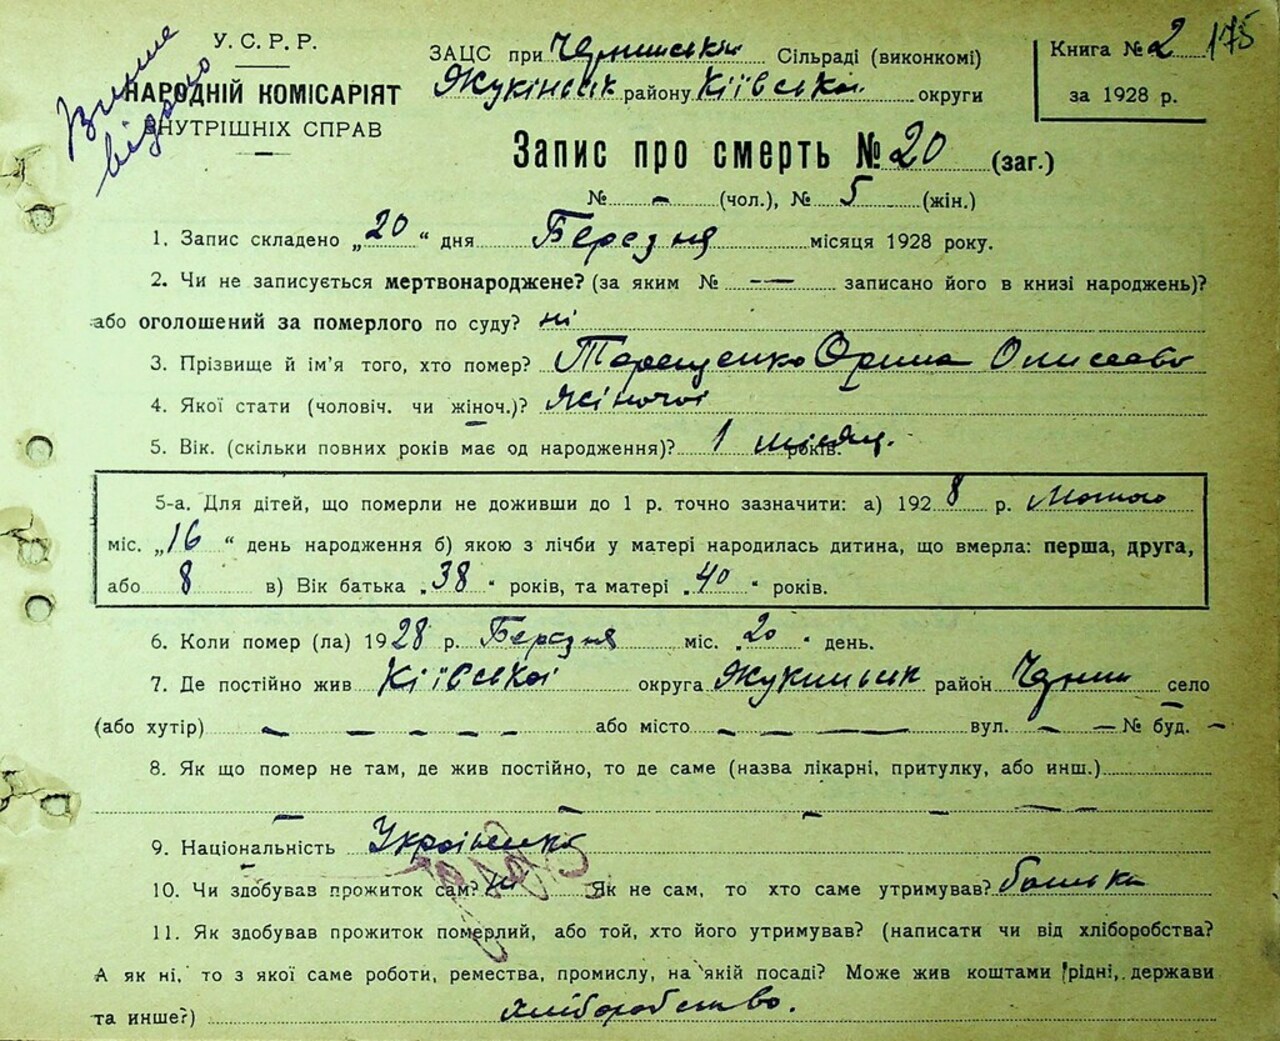 У.С.Р.Р.
НАРОДНІЙ КОМІСАРІЯТ
ВНУТРІШНІХ СПРАВ
ЗАЦС при Сільраді (виконкомі)
району Київської округи
Книга № 2 175
за 1928 р.
Запис про смерть № 20 (заг.)
№ - (чол.), № 5 (жін.)
1. Запис складено „20“ дня Березня місяця 1928 року.
2. Чи не записується мертвонароджене? (за яким № — записано його в книзі народжень)?
або оголошений за померлого по суду? ні
3. Прізвище й ім'я того, хто помер? Терещенко Орина
4. Якої стати (чоловіч. чи жіноч.)? жіночої
5. Вік. (скільки повних років має од народження)? 1 місяц. років.
5-а. Для дітей, що померли не доживши до 1 р. точно зазначити: а) 1928 р. Лютого
міс. „16“ день народження б) якою з лічби у матері народилась дитина, що вмерла: перша, друга,
або 8 в) Вік батька „38“ років, та матері „40“ років.
6. Коли помер (ла) 1928 р. Березня міс. „20“ день.
7. Де постійно жив Київської округа район село
(або хутір) — — — — — або місто — — — вул. — — № буд. –
8. Як що помер не там, де жив постійно, то де саме (назва лікарні, притулку, або инш.)
9. Національність Українка
10. Чи здобував прожиток сам? ні Як не сам, то хто саме утримував? батьки
11. Як здобував прожиток померлий, або той, хто його утримував? (написати чи від хліборобства?
А як ні, то з якої саме роботи, ремества, промислу, на якій посаді? Може жив коштами рідні, держави
та инше?) хліборобство.